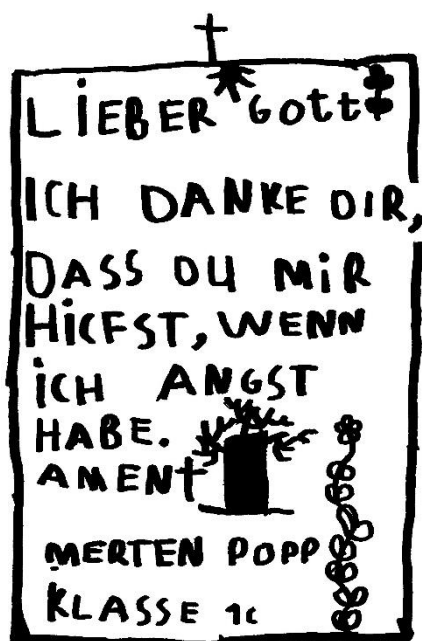 LiEBER Gott
ICH DANKE DIR,
DASS DU MiR
HiCFST, WENN
iCH ANGST
HABE.
AMEN
MERTEN POPP
KLASSE 1c